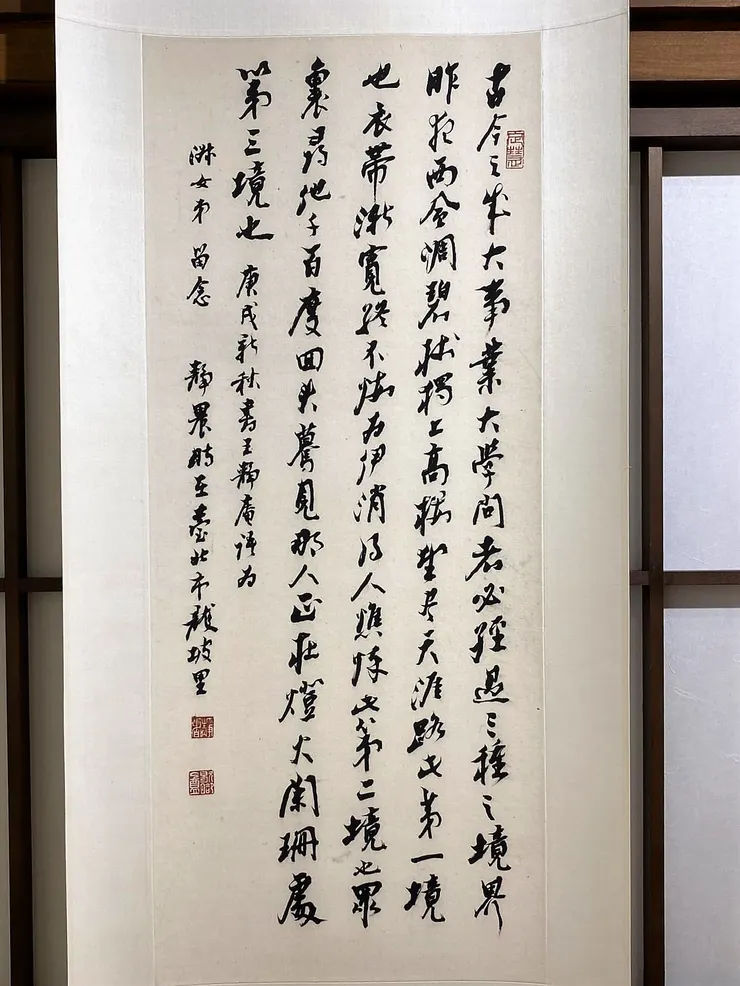 古今之成大事業大學問者必經過三種之境界
昨夜西風凋碧樹獨上高樓望盡天涯路此第一境
也衣帶漸寬終不悔為伊消得人憔悴此第二境也眾
裏尋他千百度回頭驀見那人正在燈火闌珊處
第三境也 庚戌新秋書王靜庵語為
淑女弟 留念 靜農時在臺北市龍坡里